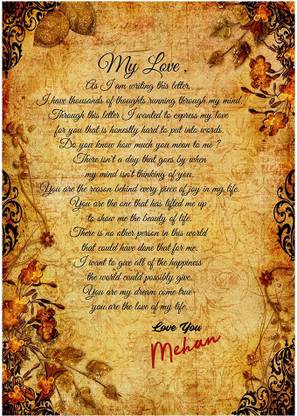 My Love,
As I am writing this letter,
I have thousands of thoughts running through my mind.
Through this letter I wanted to express my love
for you that is honestly hard to put into words.
Do you know how much you mean to me ?
There isn't a day that goes by when
my mind isn't thinking of you.
You are the reason behind every piece of joy in my life.
You are the one that has lifted me up
to show me the beauty of life.
There is no other person in this world
that could have done that for me.
I want to give all of the happiness
the world could possibly give.
You are my dream come true
you are the love of my life.
Love You
Mehan